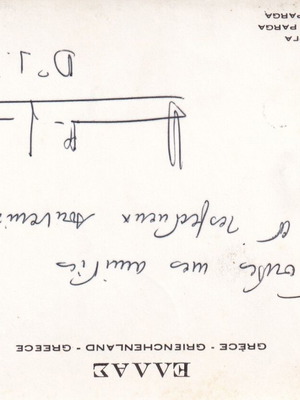 ΕΛΛΑΣ
GRÈCE - GRIENCHENLAND - GREECE
Toutes mes amitiés
et respectueux souveni
ΓΑ
PARGA
PARGA